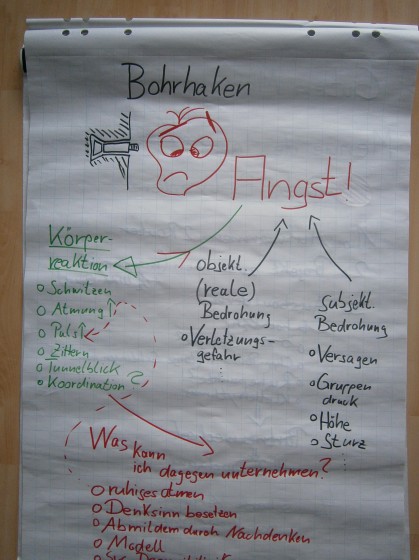 Bohrhaken
Angst!
Körper-
reaktion
Schwitzen
Atmung↑
Puls↑
Zittern
Tunnelblick
Koordination?
objekt.
(reale)
Bedrohung
Verletzungs-
gefahr
...
subjekt.
Bedrohung
Versagen
Gruppen
druck
Höhe
Sturz
...
Was kann
ich dagegen unternehmen?
ruhiges atmen
Denksinn besetzen
Abmildern durch Nachdenken
Modell